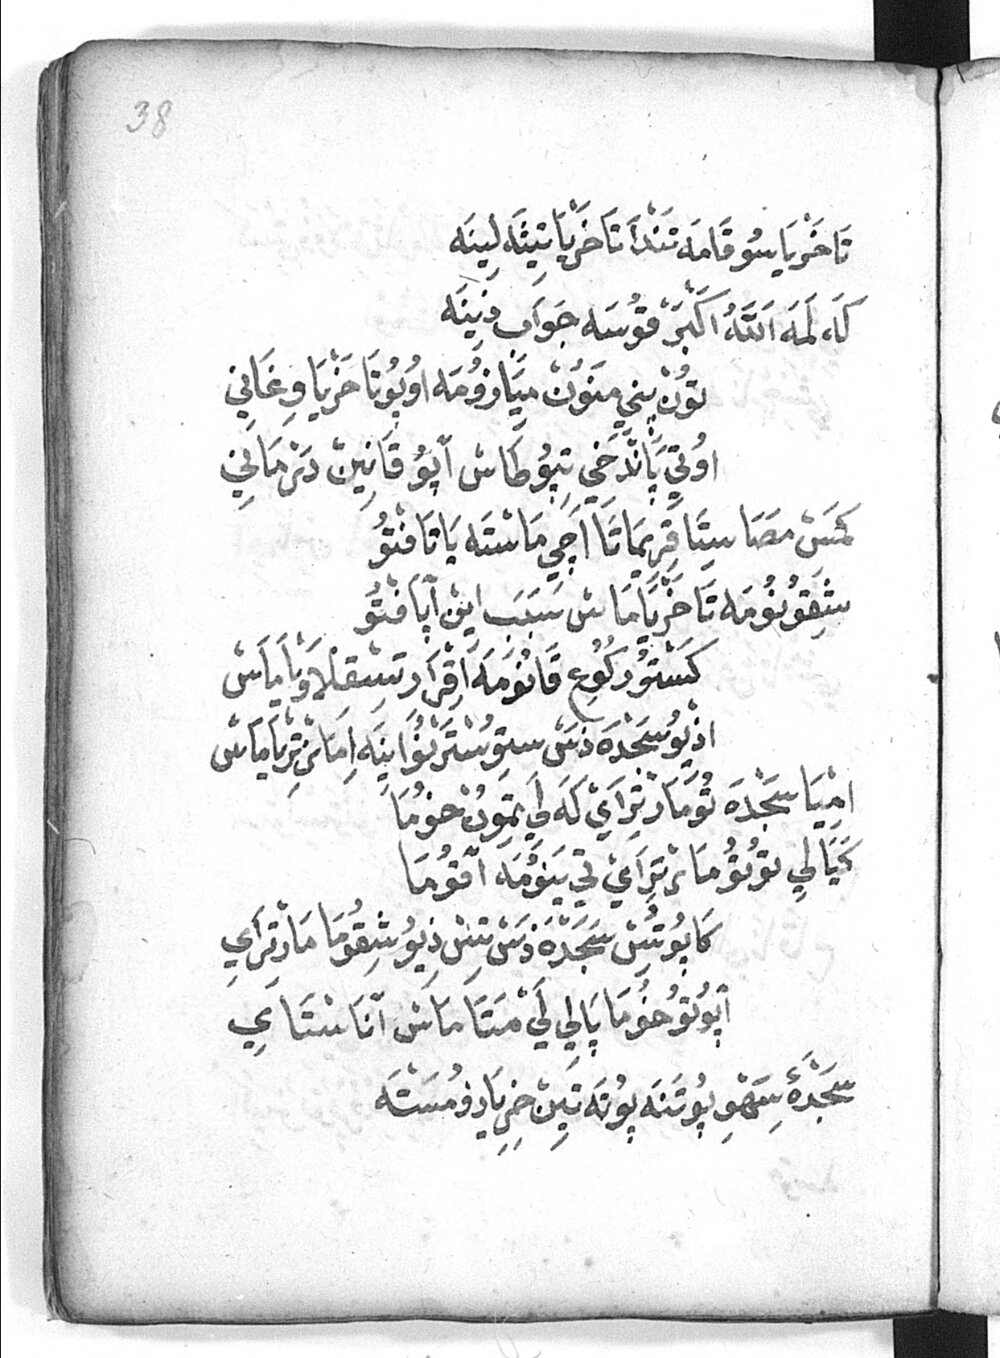 38
تَاخَرْيَاسُو قَامَه تَنْدَا تَاخَرْيَا تِيثَه لِينَه
كَاءَ لَمَه اَللَّهُ اَكْبَرْ قوُسَه جَوَاب دِينَه
توُنْ بَنِي مَنَوُنْ مِيَارْوُمَه اوُبوُنَا خَرْيَا وِغَانِي
اوُتِي پَانْدَخِي تِپوُطَاسْ آپوُ قَانِينْ دَرْمَانِي
كَمَسْ مَصَا سِيتَا قِرِيمَاتَا اَچِي مَاسْتَه يَاتَا فْتوُ
شِقوُنوُمَه تَاخَرْيَامَاسْ سَبَبْ اينْ آپَافْتوُ
كَسْتوُ رُكوُعِ قَانوُمَه اَقْرَارْ تِسْقِلَاوْيَامَاسْ
اذْيوُ سَجْدَه ذَسْ سِتوُسْتَرْنوُ اينَه اِمَارْتِرْيَامَاسْ
امْيَا سَجْدَه توُمَارْتِرَايْ كَه لَي تِمَوُنْ خوُمَا
كَيَالِي توُتوُ مَارْتِرَايْ تِي يَنوُمَه آقوُمَا
كَاپوُتِسْ سَجْدَه ذَسْ تِسْ ذِيوُ شِقوُمَا مَارْتِرَايِ
آپوُتوُ خوُمَا پَالِي لَيْ مَتَامَاسْ آنَاسْتَايِ
سَجْدَهءِ سَهْوِ پوُتَنَه پوُتَه تِينْ خِرِيَازوُمَسْتَه